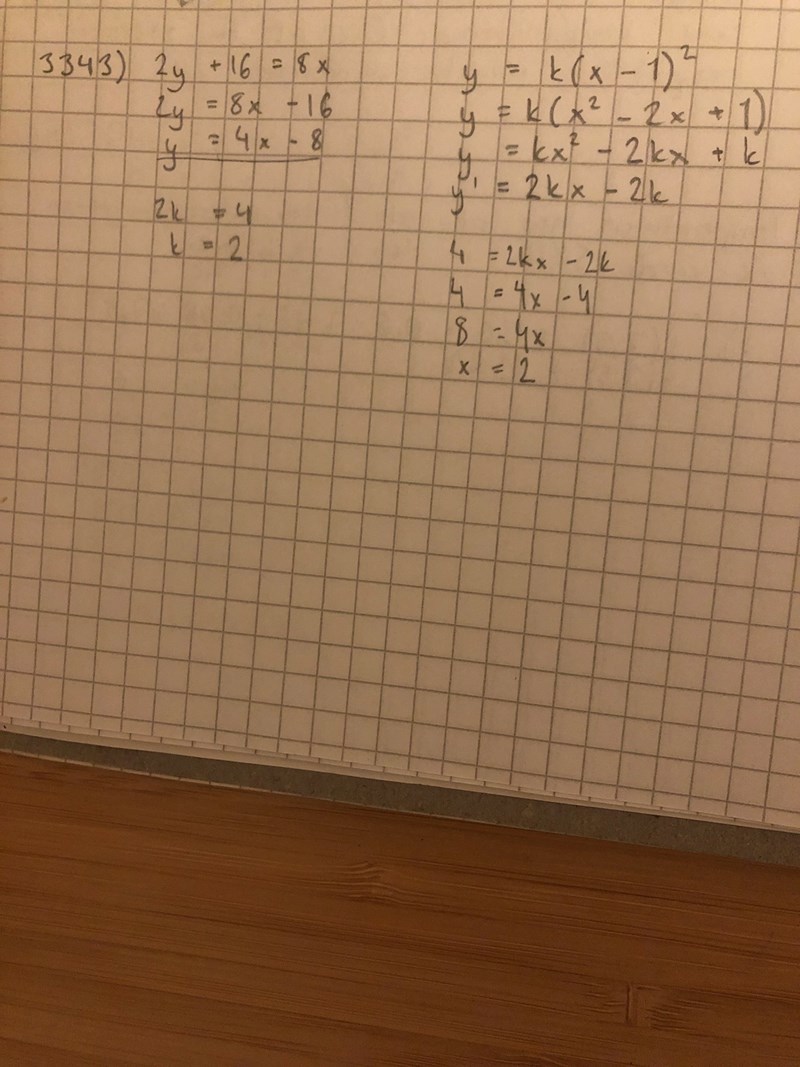 3343) 2y + 16 = 8x
2y = 8x - 16
y = 4x - 8
2k = 4
k = 2
y = k(x - 1)²
y = k(x² - 2x + 1)
y = kx² - 2kx + k
y' = 2kx - 2k
4 = 2kx - 2k
4 = 4x - 4
8 = 4x
x = 2